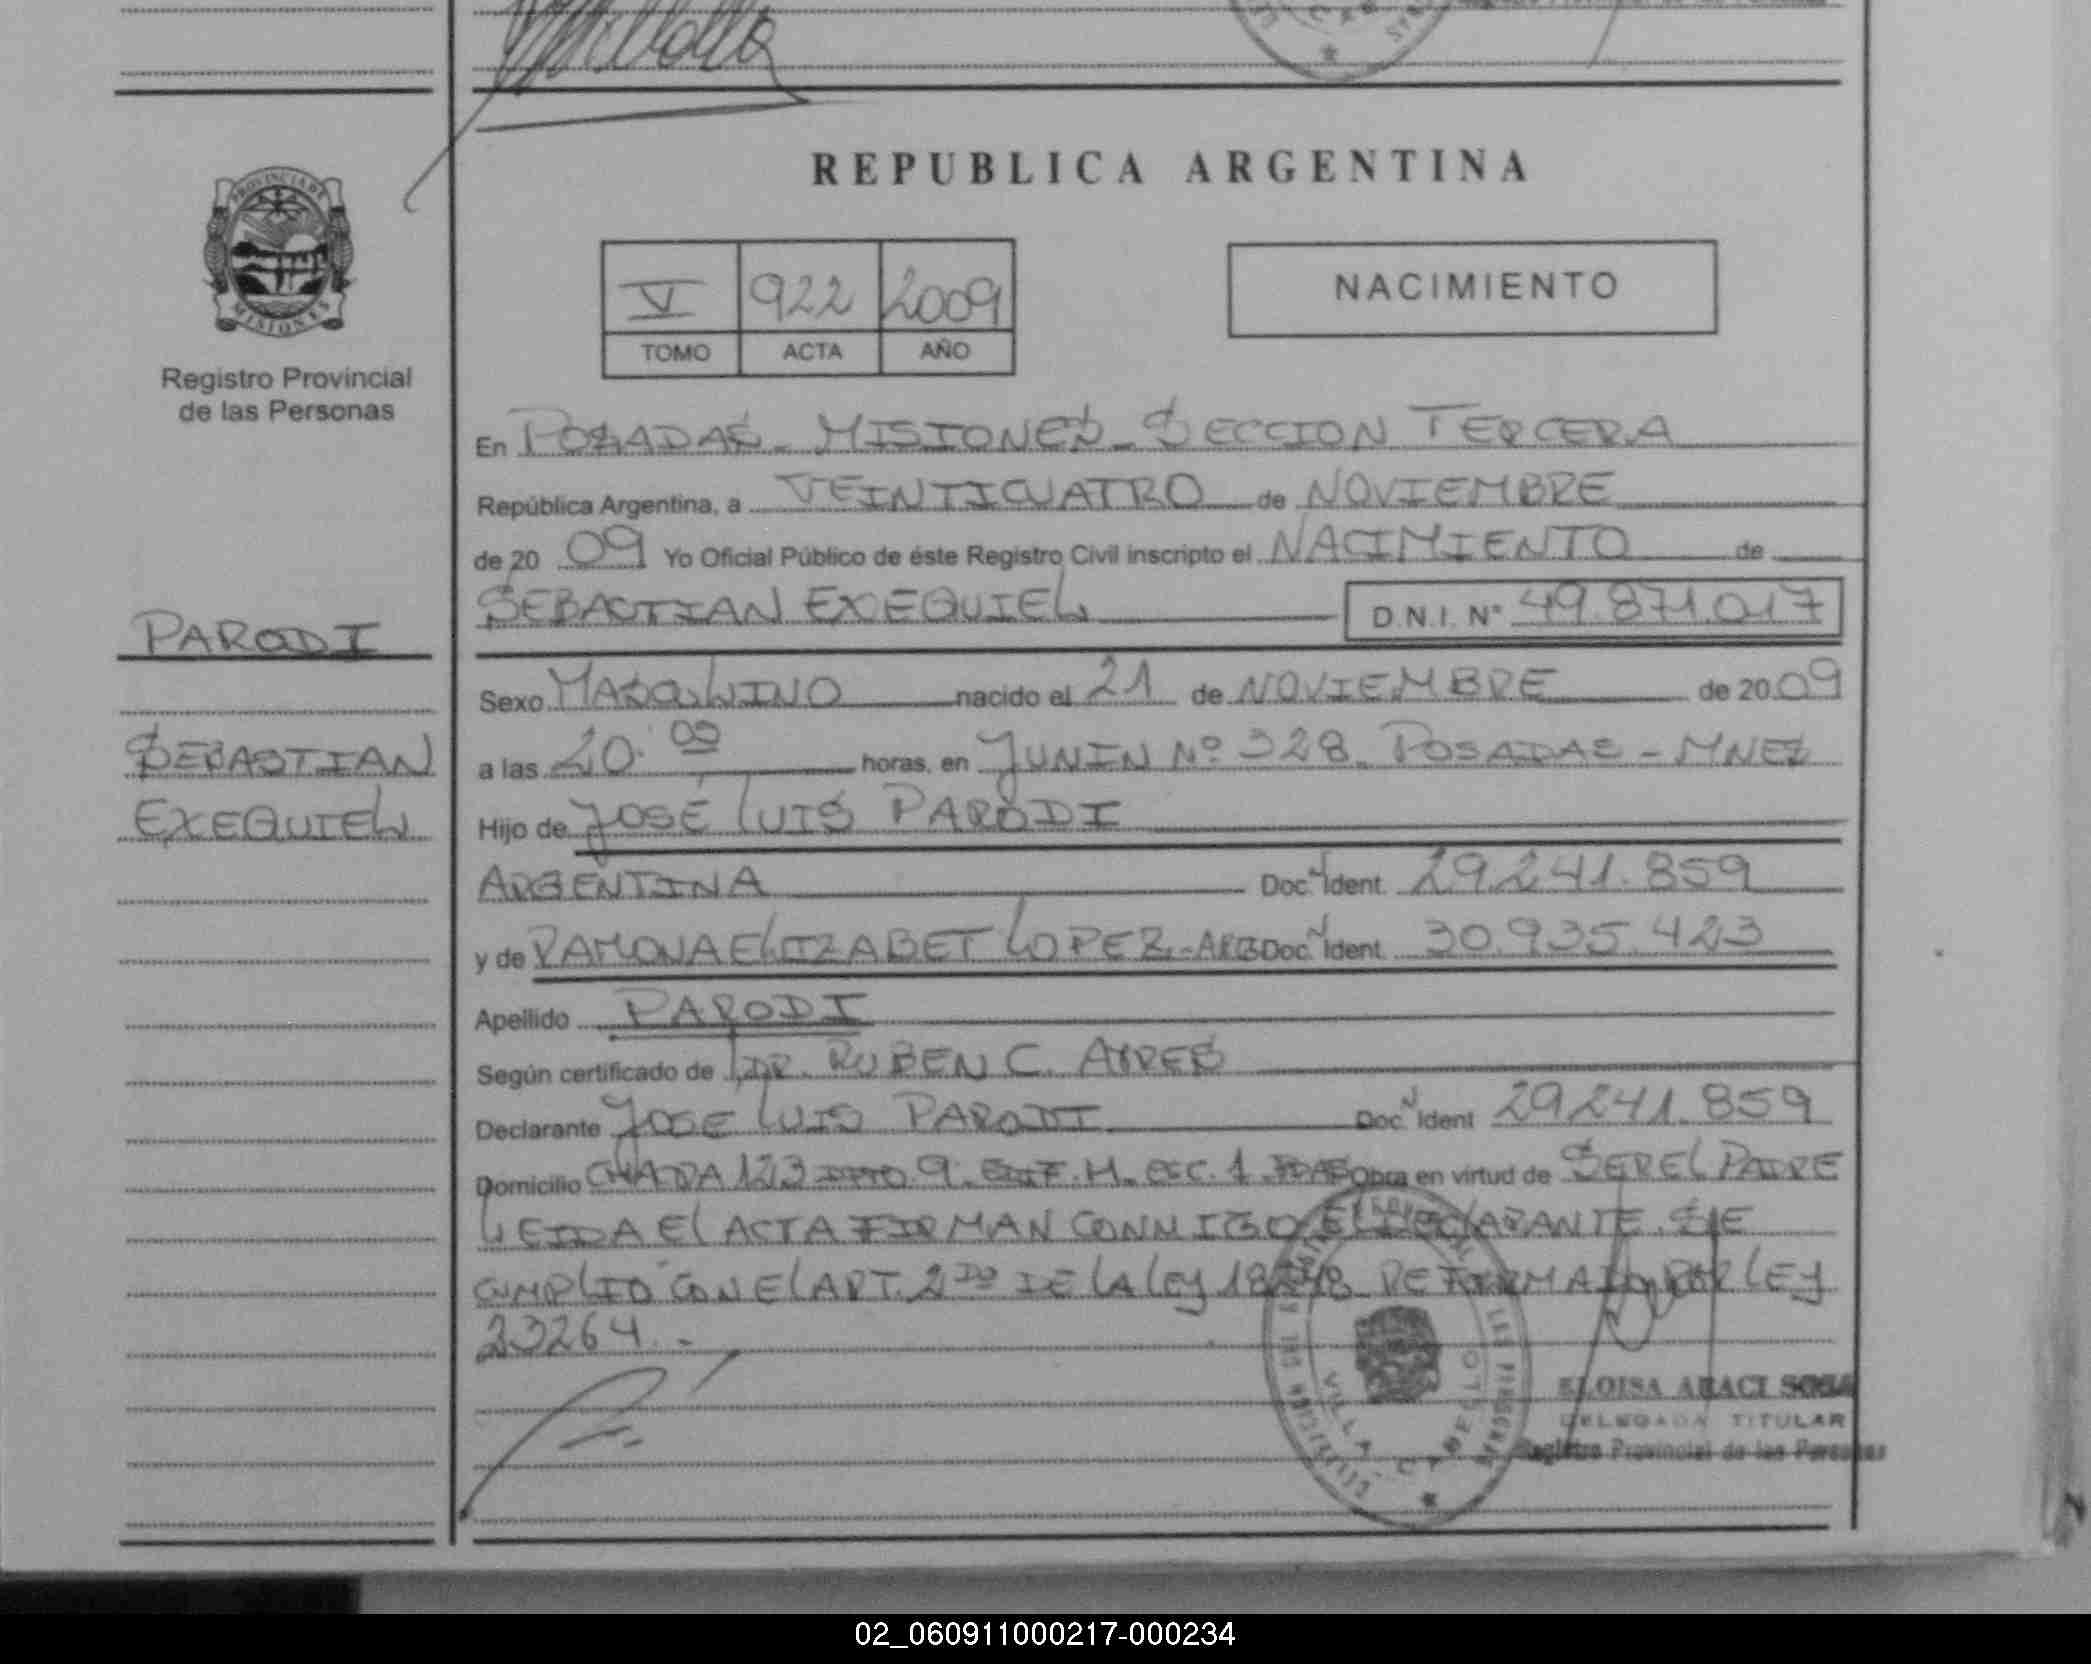 REPUBLICA ARGENTINA
PROVINCIA DE
MISIONES
Registro Provincial
de las Personas
V 922 2009
TOMO ACTA AÑO
NACIMIENTO
En POSADAS - MISIONES - SECCION TERCERA
República Argentina, a VEINTICUATRO de NOVIEMBRE
de 20 09 Yo Oficial Público de éste Registro Civil inscripto el NACIMIENTO de
SEBASTIAN EXEQUIEL D.N.I. N° 49.871.017
PARODI
SEBASTIAN
EXEQUIEL
Sexo MASCULINO nacido el 21 de NOVIEMBRE de 20 09
a las 20.00 horas, en JUNIN Nº 328. POSADAS - MNES
Hijo de JOSÉ LUIS PARODI
ARGENTINA Doc. Ident. 29.241.859
y de RAMONA ELIZABET LOPEZ - ARG Doc. Ident. 30.935.423
Apellido PARODI
Según certificado de DR. RUBEN C. AYRES
Declarante JOSE LUIS PARODI Doc. Ident 29.241.859
Domicilio 123 9. H. ESC. 1 en virtud de SER EL PADRE
LEIDA EL ACTA FIRMAN CONMIGO EL DECLARANTE. SE
CUMPLIO CON EL ART. 2DO DE LA LEY 18248 REFORMADO POR LEY
23264.-
VILLA CABELLO
ELOISA ARACI SOSA
DELEGADA TITULAR
Registro Provincial de las Personas
02_060911000217-000234